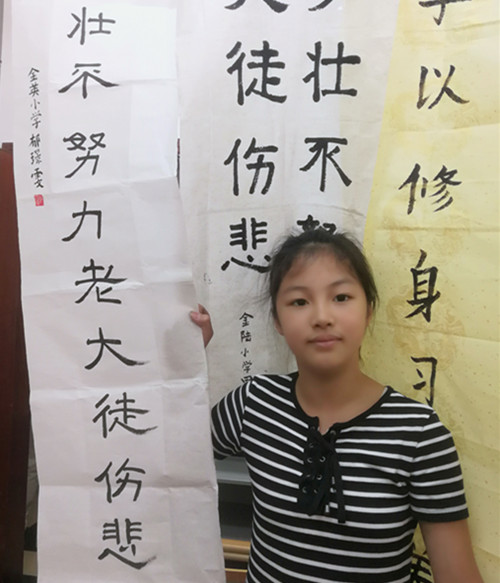 壮不努力老大徒伤悲
金英小学
壮不努
大徒伤悲
金陆小学四
以修身习